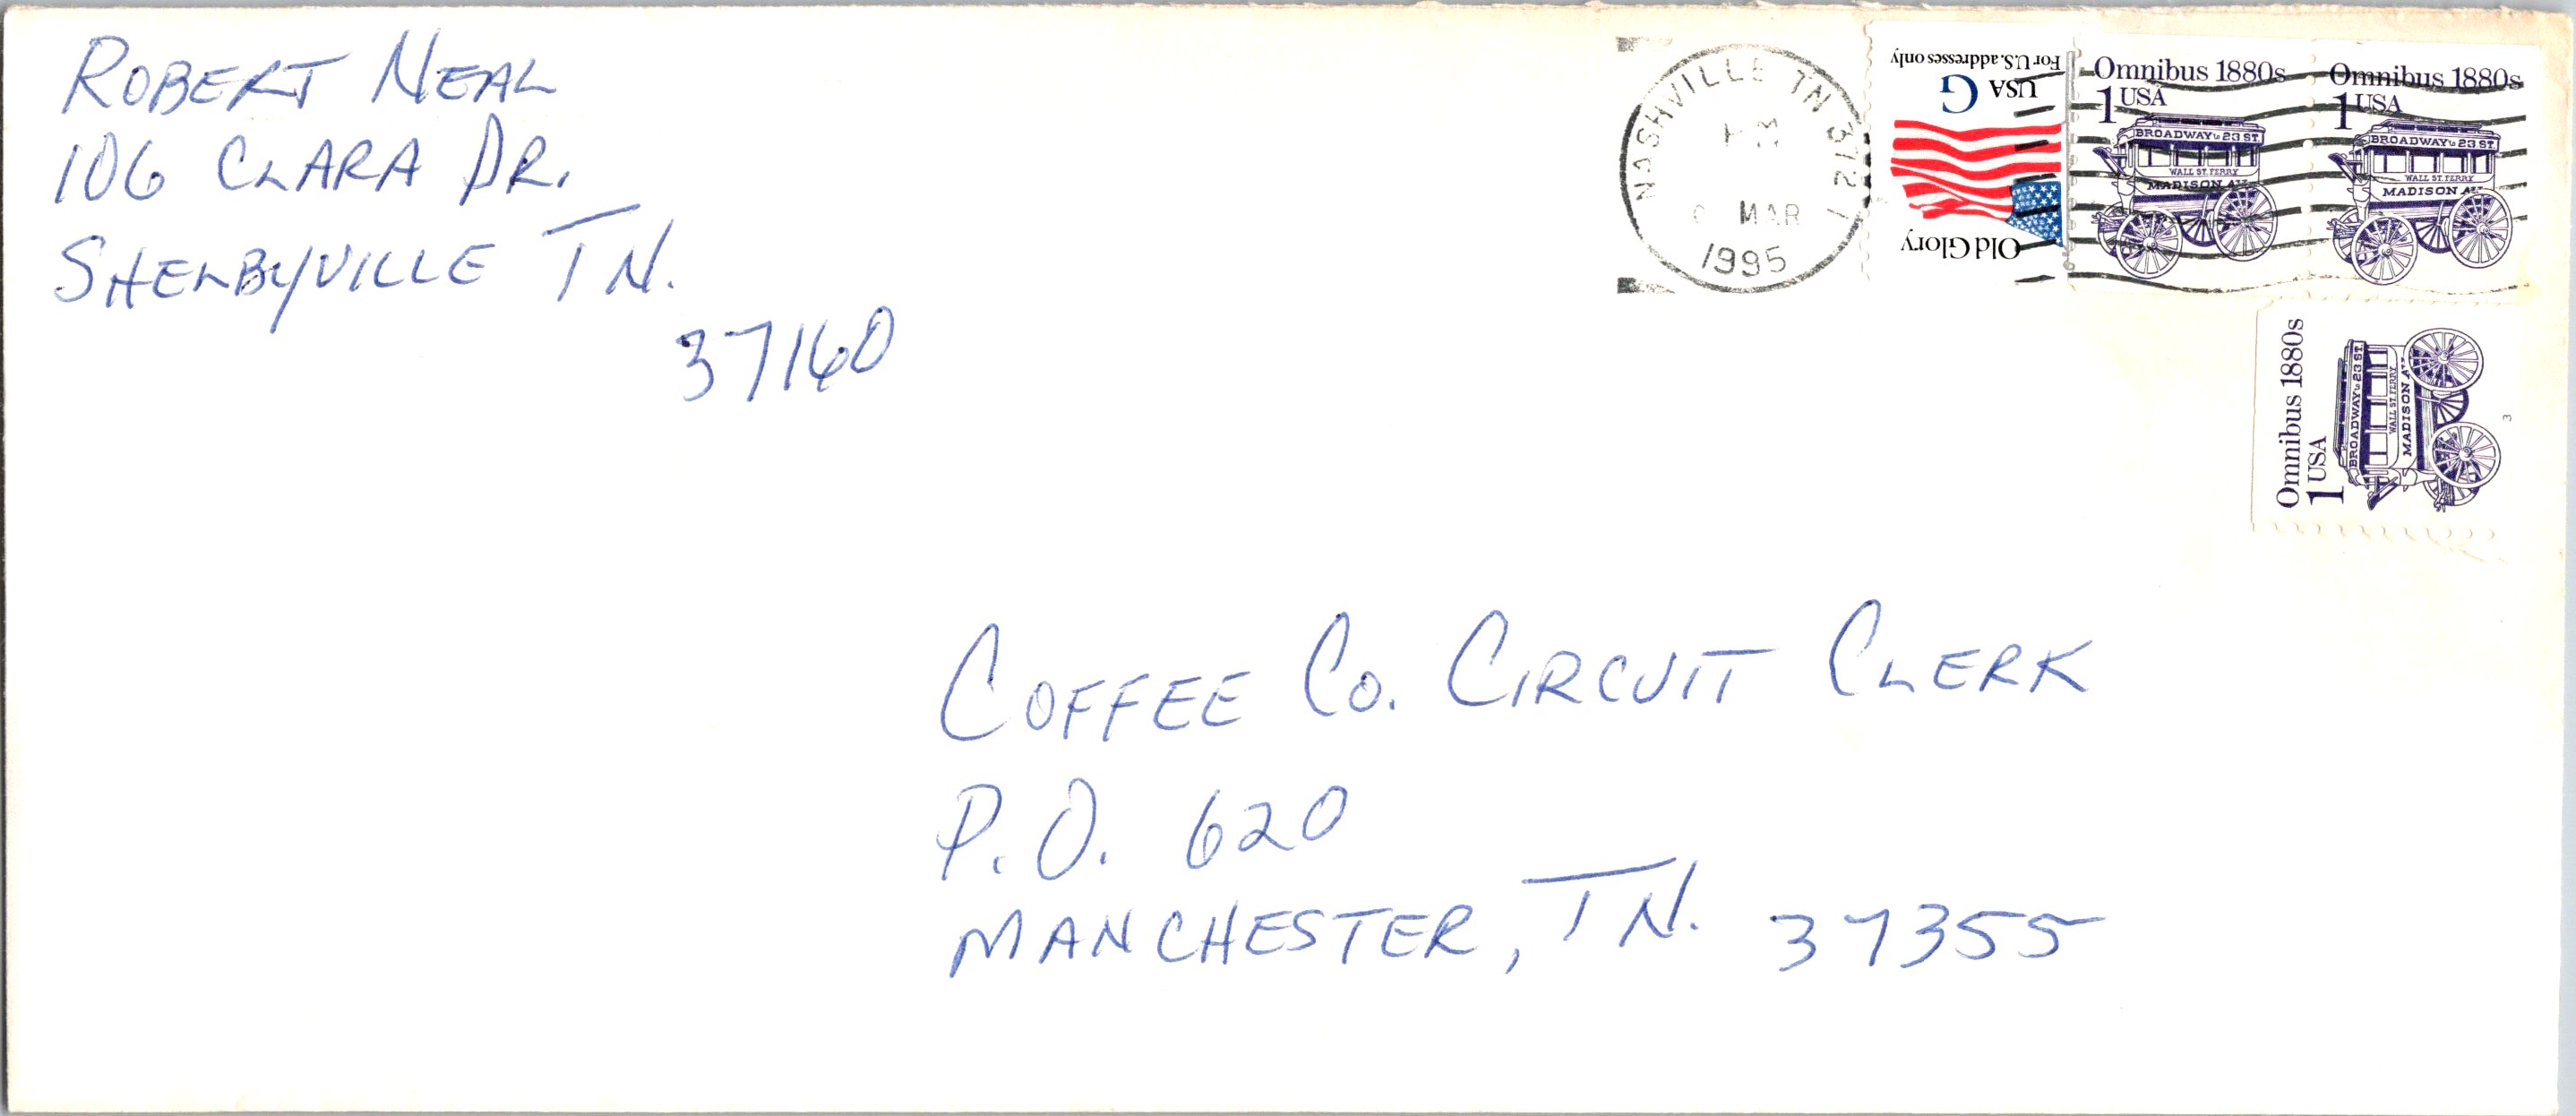 ROBERT NEAL
106 CLARA DR.
SHELBYVILLE TN.
37160
NASHVILLE TN 372
MAR
1995
For U.S. addresses only
USA G
Old Glory
Omnibus 1880s
1 USA
BROADWAY & 23 ST.
WALL ST. FERRY
MADISON AV.
Omnibus 1880s
1 USA
BROADWAY & 23 ST.
WALL ST. FERRY
MADISON AV.
Omnibus 1880s
1 USA
BROADWAY & 23 ST.
WALL ST. FERRY
MADISON A
3
COFFEE CO. CIRCUIT CLERK
P.O. 620
MANCHESTER, TN. 37355